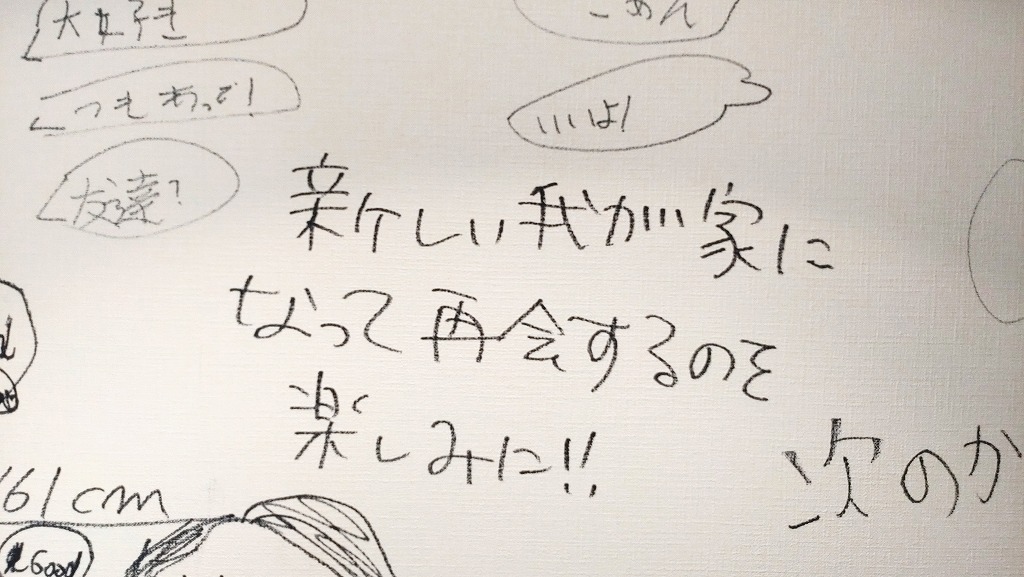 大好き
ごめん
いいよ!
友達?
新しい我が家に
なって再会するのを
楽しみに!!
次のか
161cm
Good